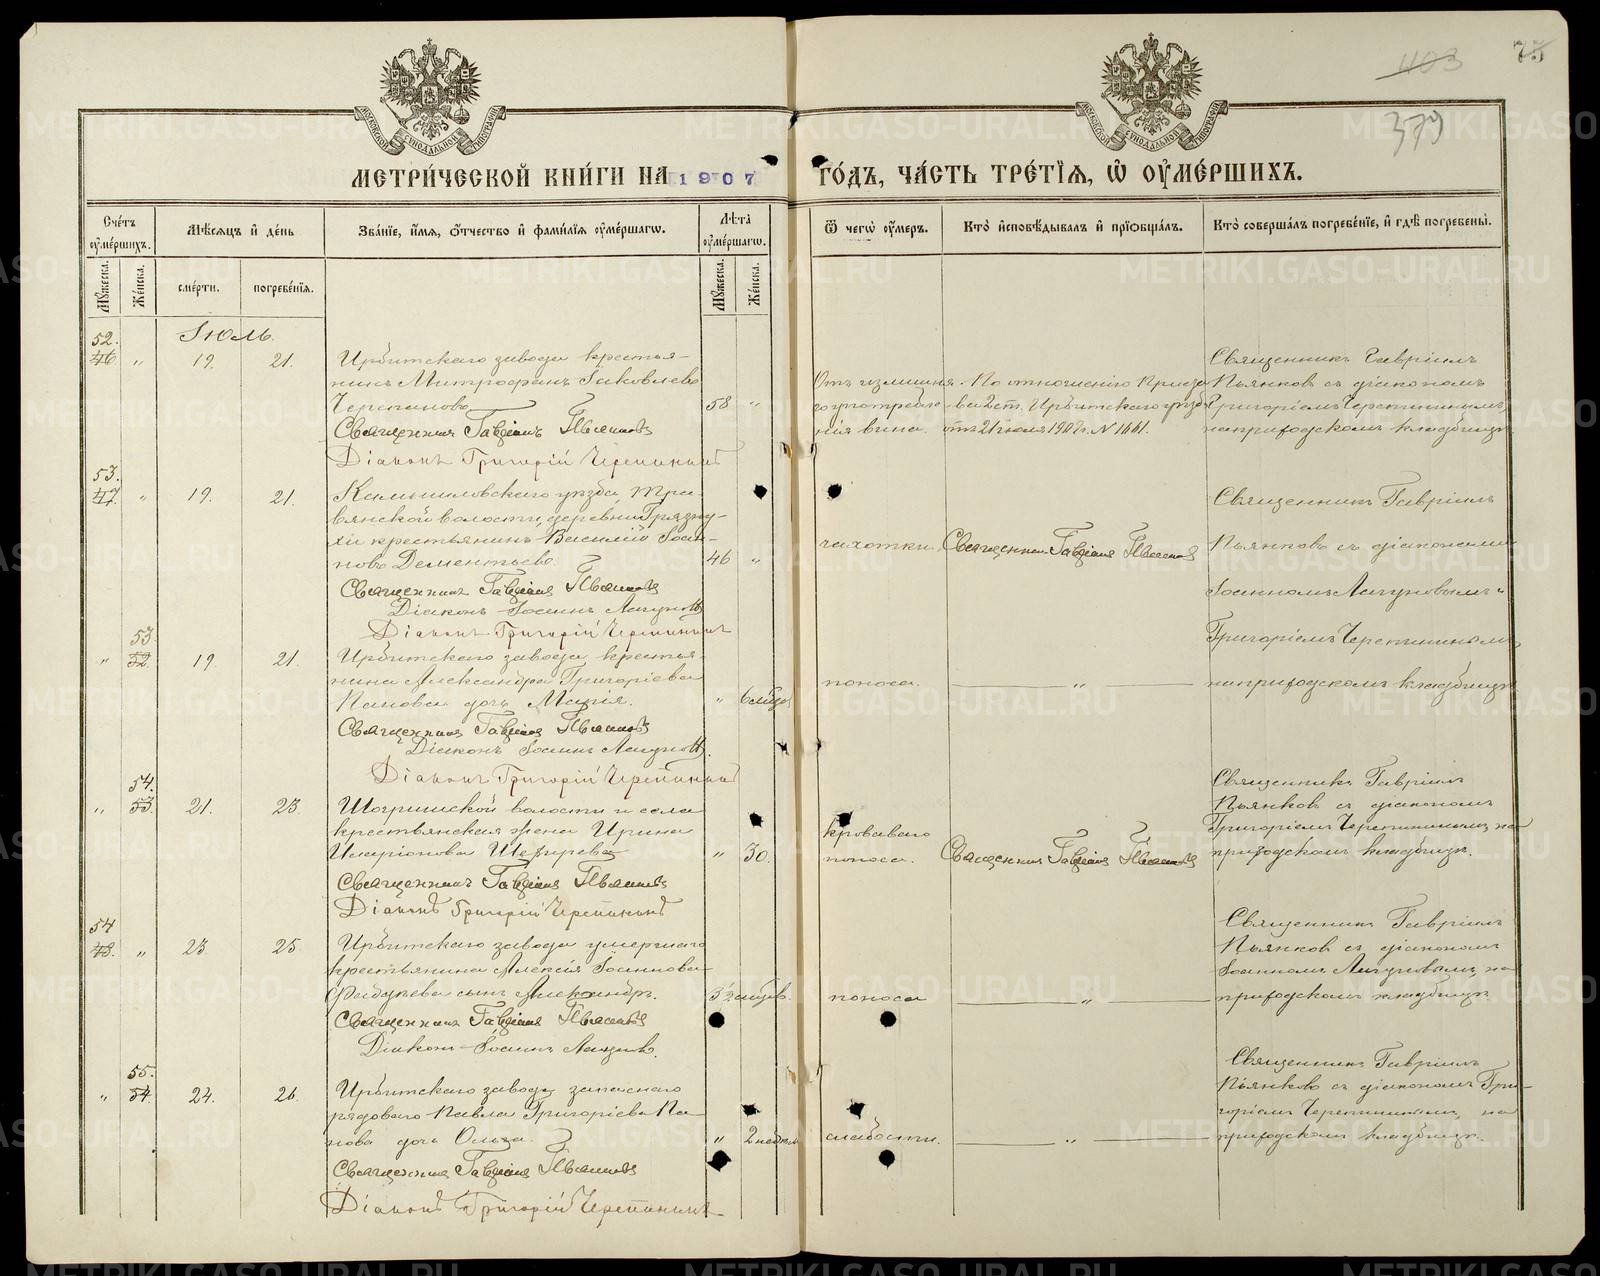 403
75
379
МОСКОВСКОЙ СѴНОДАЛЬНОЙ ТИПОГРАФІИ
МОСКОВСКОЙ СѴНОДАЛЬНОЙ ТИПОГРАФІИ
МЕТРИ́ЧЕСКОЙ КНИ́ГИ НА 1907
ГО́ДЪ, ЧА́СТЬ ТРЕ́ТІѦ, Ѽ ОУ҆МЕ́РШИХЪ.
Сче́тъ оу҆ме́ршихъ.
Мꙋ́жеска.
Же́нска.
Мѣ́сѧцъ и҆ де́нь
сме́рти.
погребе́нїѧ.
Зва́нїе, и҆́мѧ, ѻ҆́тчество и҆ фами́лїѧ оу҆ме́ршагѡ.
Лѣ́та оу҆ме́ршагѡ.
Мꙋ́жеска.
Же́нска.
Ѿ чегѡ̀ оу҆́меръ.
Кто̀ и҆сповѣ́дывалъ и҆ прїѡбща́лъ.
Кто̀ соверша́лъ погребе́нїе, и҆ гдѣ̀ погребены̀.
Іюль.
52.
46. „ 19. 21.
Ирбитскаго завода крестья-
нинъ Митрофанъ Іаковлевъ
Черепановъ 58 „
Священникъ Гавріилъ Пьянковъ
Діаконъ Григорій Черепанинъ
Отъ излишня-
го употребле-
нія вина.
По отношенію Приста-
ва 2 ст. Ирбитскаго уѣзда
отъ 21 іюля 1907 г. N 1661.
Священникъ Гавріилъ
Пьянковъ съ діакономъ
Григоріемъ Черепанинымъ,
на приходскомъ кладбищѣ
53.
47. „ 19. 21.
Камышловскаго уѣзда, Тра-
вянской волости, деревни Грязну-
хи крестьянинъ Василій Іоан-
новъ Дементьевъ 46 „
Священникъ Гавріилъ Пьянковъ
Діаконъ Іоаннъ Лагуновъ
Діаконъ Григорій Черепанинъ
чахотки.
Священникъ Гавріилъ Пьянковъ
Священникъ Гавріилъ
Пьянковъ съ діаконами
Іоанномъ Лагуновымъ и
Григоріемъ Черепанинымъ
на приходскомъ кладбищѣ
53.
„ 52. 19. 21.
Ирбитскаго завода крестья-
нина Александра Григоріева
Панова дочь Марія. „ 6 мѣср.
Священникъ Гавріилъ Пьянковъ
Діаконъ Іоаннъ Лагуновъ.
Діаконъ Григорій Черепанинъ
поноса.
„
54.
„ 53. 21. 23
Шогринской волости и села
крестьянская жена Ирина
Иларіонова „ 30.
Священникъ Гавріилъ Пьянковъ
Діаконъ Григорій Черепанинъ
кроваваго
поноса.
Священникъ Гавріилъ Пьянковъ
Священникъ Гавріилъ
Пьянковъ съ діакономъ
Григоріемъ Черепанинымъ, на
приходскомъ кладбищѣ.
54
48. „ 23 25.
Ирбитскаго завода умершаго
крестьянина Алексія Іоаннова
сынъ Александръ. 3½ мѣсяц.
Священникъ Гавріилъ Пьянковъ
Діаконъ Іоаннъ Лагуновъ.
поноса
„
Священникъ Гавріилъ
Пьянковъ съ діакономъ
Іоанномъ Лагуновымъ, на
приходскомъ кладбищѣ.
55.
„ 54. 24. 26.
Ирбитскаго завода запаснаго
рядоваго Павла Григоріева Па-
нова дочь Ольга. „ 2 недѣли
Священникъ Гавріилъ Пьянковъ
Діаконъ Григорій Черепанинъ
слабости.
„
Священникъ Гавріилъ
Пьянковъ съ діакономъ Гри-
горіемъ Черепанинымъ, на
приходскомъ кладбищѣ.
METRIKI.GASO-URAL.RU